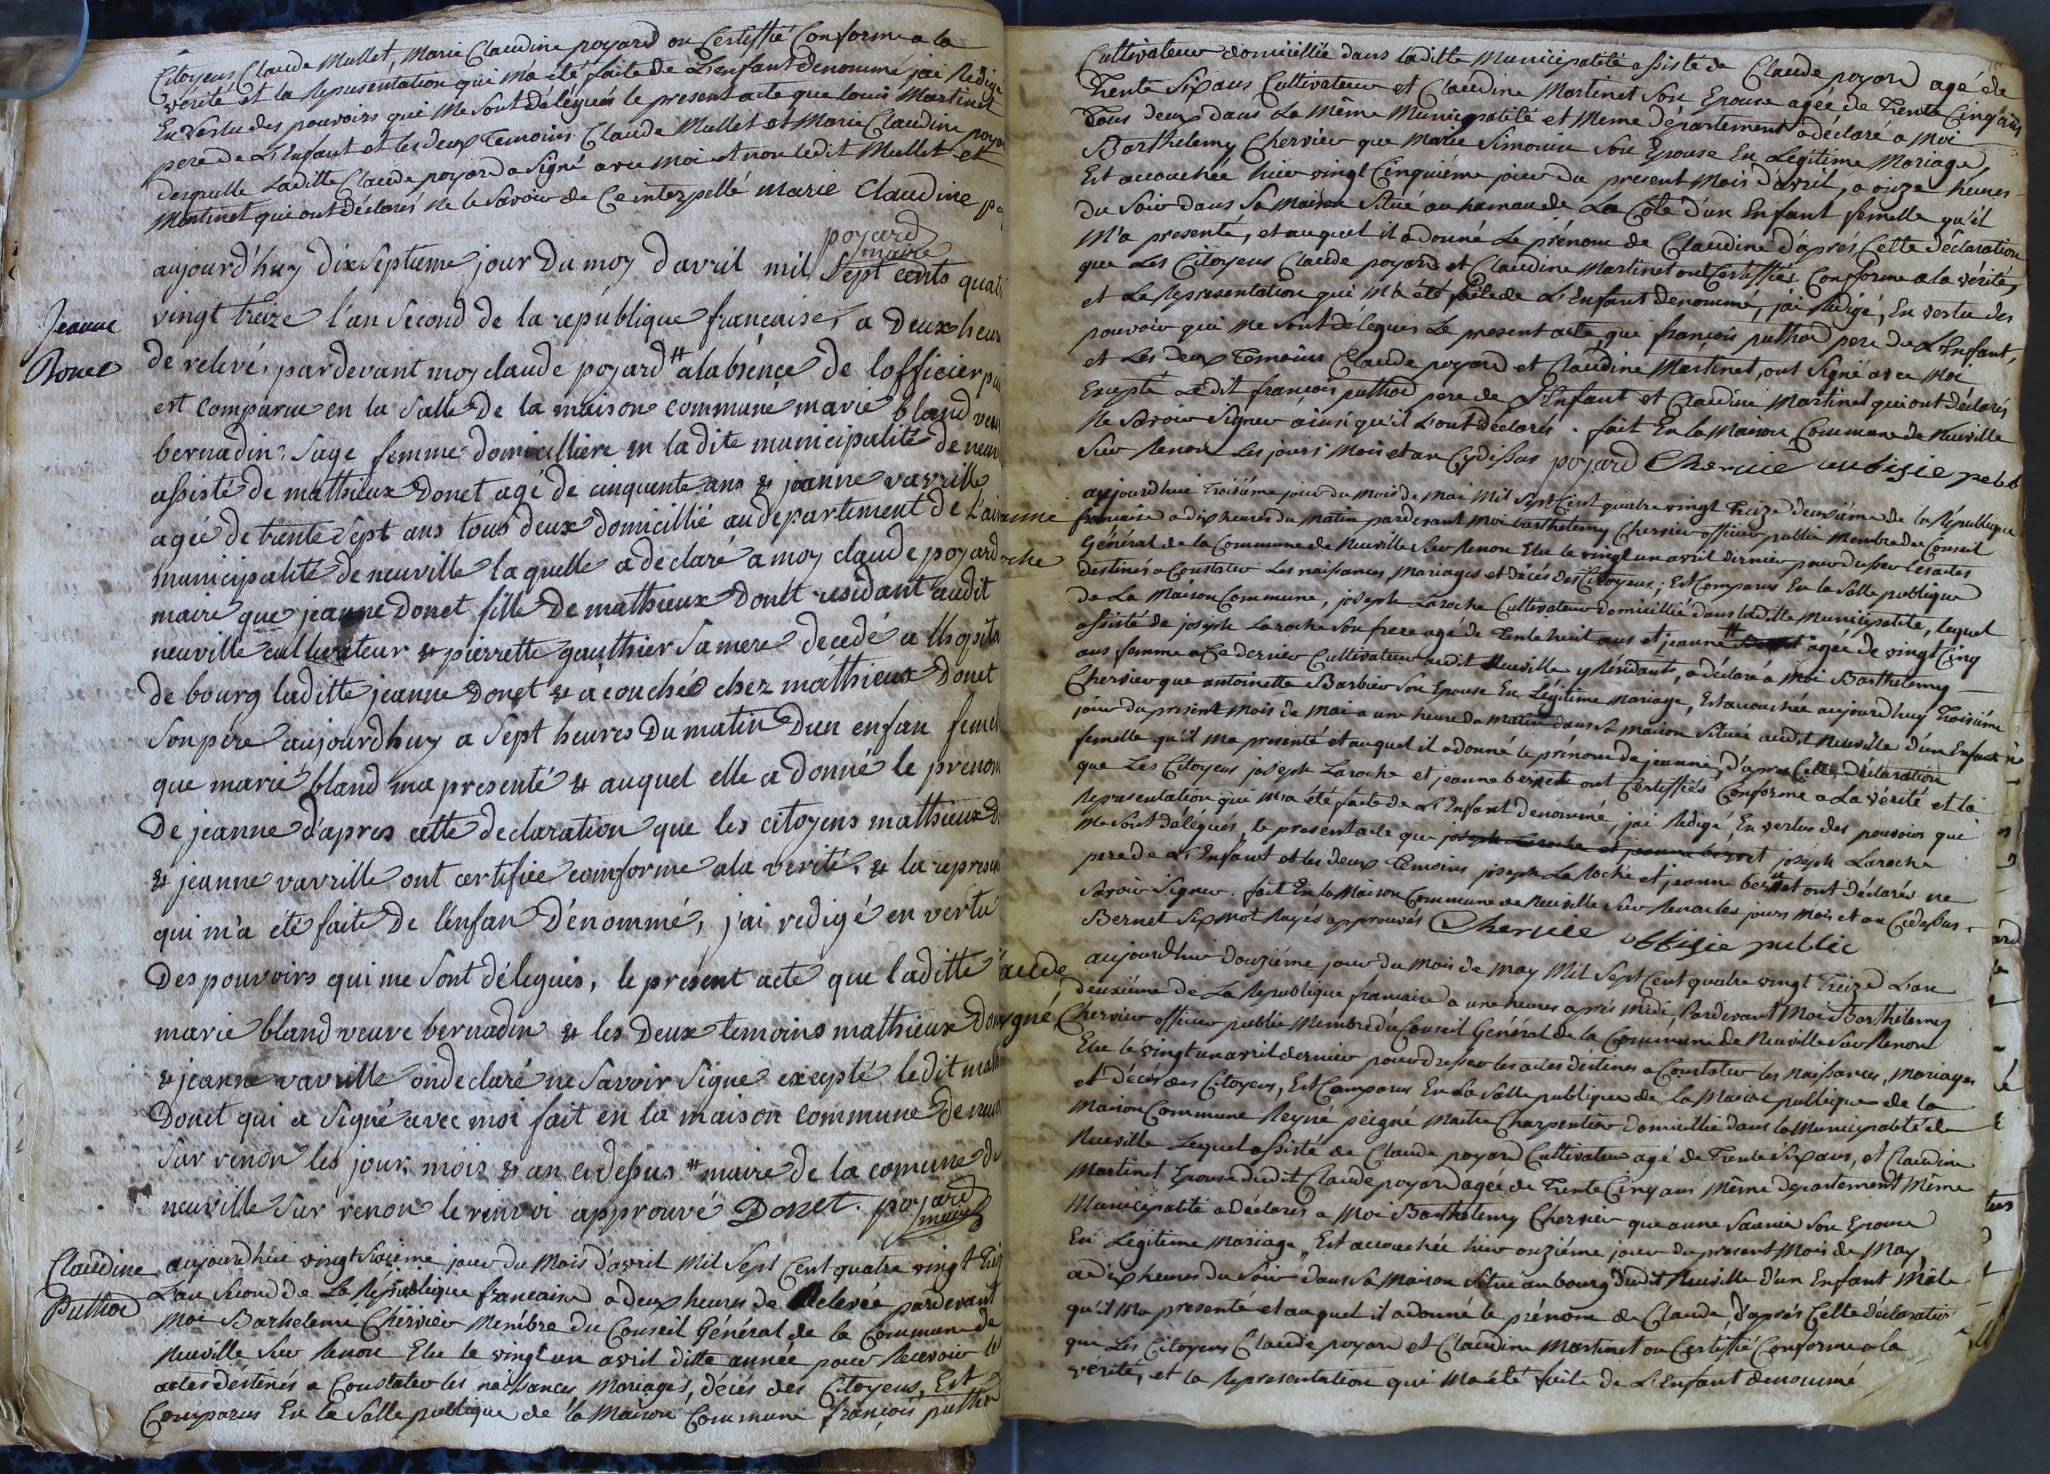 Citoyens Claude Mullet, Marie Claudine poyard on Certiffié Conforme a la
vérité et la Representation qui m'a été faite de L'enfant denommé jai Redigé
En vertu des pouvoirs qui me sont délégués le present acte que louis Martinet
pere de L'Enfant et les deux Temoins Claude Mullet et Marie Claudine poyard
desquelle Laditte Claude poyard a Signé avec moi et non ledit Mullet et
Martinet qui ont déclarés ne le Savoir de Ce interpellé marie Claudine
poyard
maire
aujourd'huy dix Septieme jour Du moy davril mil Sept cents quat
vingt treize l'an Second de la republique francaise, a Deux heur
Jeanne
Donet
de relevé, pardevant moy claude poyard # alabsence de lofficier
est comparue en la Salle De la maison commune marie bland veu
bernadin, Sage femme domicilliere en ladite municipalité de neuv
assisté de mathieux Donet agé de cinquente ans & jeanne vavrille
agée de trente Sept ans tous deux domicillié au departement de l'ain
municipalité de neuville laquelle a declaré a moy claude poyard
maire que jeanne Donet fille De mathieux Donet residant audit
neuville cultivateur & pierrette gauthier Sa mere decedé a lhopita
de bourg laditte jeanne Donet & acouchée chez mathieux Donet
Son pere aujourdhuy a Sept heures Du matin Dun enfan femel
que marie bland ma presenté & auquel elle a donné le prenom
De jeanne d'apres cette declaration que les citoyens mathieux D
& jeanne vavrille ont certifiée comforme ala verité, & la represen
qui m'a eté faite De l'enfan D'enommé, j'ai redigé en vertu
Des pouvoirs qui me Sont délegués, le present acte que laditte
marie bland veuve bernadin & les Deux temoins mathieux Don
& jeanne vavrille ondeclaré ne Savoir Signe excepté ledit math
Donet qui a Signé avec moi fait en la maison commune de neuv
Sur renon les jour, mois & an ci dessus # maire de la comune de
neuville Sur renon le renvoi approuvé Donet. poyard
maire
Claudine
Puthod
aujourdhui vingt Sixieme jour du Mois d'avril Mil Sept Cent quatre vingt Trei
L'an Second de La République francaise a deux heures de Relevée pardevant
Moi Barthelemi Chervier Membre du Conseil Général de la Commune de
Neuville Sur Renon Elu le vingt un avril ditte année pour Recevoir les
actes destinés a Constater les naissances, Mariages, décés des Citoyens, Est
Comparus En la Salle publique de la Maison Commune françois puthod
Cultivateur domicillié dans laditte Municipalité assisté de Claude poyard agé de
Trente Six ans Cultivateur et Claudine Martinet Son Epouse agée de Trente Cinq ans
Tous deux dans La Même Municipalité et Meme département a déclaré a Moi
Barthelemy Chervier que Marie Simonin Son Epouse En Legitime Mariage,
Est accouchée hier vingt Cinquiéme jour du present Mois d'avril, a onze heures
du Soir dans Sa Maison Situé au hameau de La Côte d'un Enfant femelle qu'il
M'a presenté, et auquel il a donné Le prénom de Claudine d'aprés Cette déclaration
que Les Citoyens Claude poyard et Claudine Martinet ont Certiffiés Conforme a la vérité,
et La Representation qui M'a été faite de L'Enfant denommé, j'ai Redigé, En vertu des
pouvoir qui me Sont délegués Le present acte, que françois puthod pere de L'Enfant,
et Les deux Temoins Claude poyard et Claudine Martinet, ont Signé avec Moi
Excepté Ledit françois puthod pere de L'Enfant et Claudine Martinet qui ont déclarés
Ne Savoir Signer ainsi qu'il L'ont déclarés. fait En la Maison Commune de Neuville
Sur Renon Les jours Mois et an Cydessus poyard Chervie
aujourdhui Troisiéme jour du Mois de Mai Mil Sept Cent quatre vingt Treize deuxiéme de la République
francaise a dix heures du Matin pardevant Moi barthelemy Chervier officier public Membre du Conseil
Général de la Commune de Neuville Sur Renon Elu le vingt un avril dernier pour dresser les actes
destinés a Constater Les naissances, Mariages et décés des Citoyens; Est Comparus En la Salle publique
de La Maison Commune, joseph Laroche Cultivateur domicillié dans laditte Municipalité, lequel
assisté de joseph Laroche Son frere agé de Trente huit ans et jeanne # agée de vingt Cinq
ans femme a Ce dernier Cultivateur audit Neuville y Résidants, a déclaré a Moi Barthelemy
Chervier que antoinette Barbier Son Epouse En Légitime Mariage, Est accouchée aujourdhuy Troisiéme
jour du present Mois de Mai a une heure du Matin dans Sa Maison Située audit Neuville d'un Enfant
femelle qu'il Ma presenté et auquel il a donné le prénom de jeanne, d'aprés Cette Déclaration
que Les Citoyens joseph Laroche et jeanne bernet ont Certiffiés Conforme a La vérité et la
Representation qui M'a été faite de L'Enfant denommé, j'ai Redigé, En vertu des pouvoirs qui
Me Sont délégués, le present acte que joseph Laroche et jeanne bernet joseph Laroche
pere de L'Enfant et les deux Temoins joseph La Roche et jeanne bernet ont déclarés ne
Savoir Signer. fait En la Maison Commune de Neuville Sur Renon les jours Mois et an Cidessus
Bernet Six Mot Rayés approuvés Chervie offisie public
aujourdhui douziéme jour du Mois de May Mil Sept Cent quatre vingt Treize L'an
deuxiéme de La Republique francaise a une heures aprés Midi, Pardevant Moi Barthelemy
Chervier officier public Membre du Conseil Général de la Commune de Neuville Sur Renon
Elu le vingt un avril dernier pour dresser les actes déstinés a Constater les Naissances, Mariages
et décés des Citoyens, Est Comparus En La Salle publique de la Maison publique de la
Maison Commune Reyné peigné Maitre Charpentier domicillié dans la Municipalité de
Neuville Lequel assisté de Claude poyard Cultivateur agé de Trente Six ans, et Claudine
Martinet Epouse dudit Claude poyard agée de Trente Cinq ans Même departement Même
Municipalité a déclarés a Moi Barthelemy Chervier que anne Saunier Son Epouse
En Légitime Mariage, Est accouchée hier onziéme jour du present Mois de May,
a dix heures du Soir dans Sa Maison Situe au bourg dudit Neuville d'un Enfant Mâle
qu'il Ma presenté et auquel il a donné le prénom de Claude, d'aprés Cette déclaration
que Les Citoyens Claude poyard et Claudine Martinet on Certiffié Conforme a la
verité, et la Representation qui Ma été faite de L'Enfant denommé